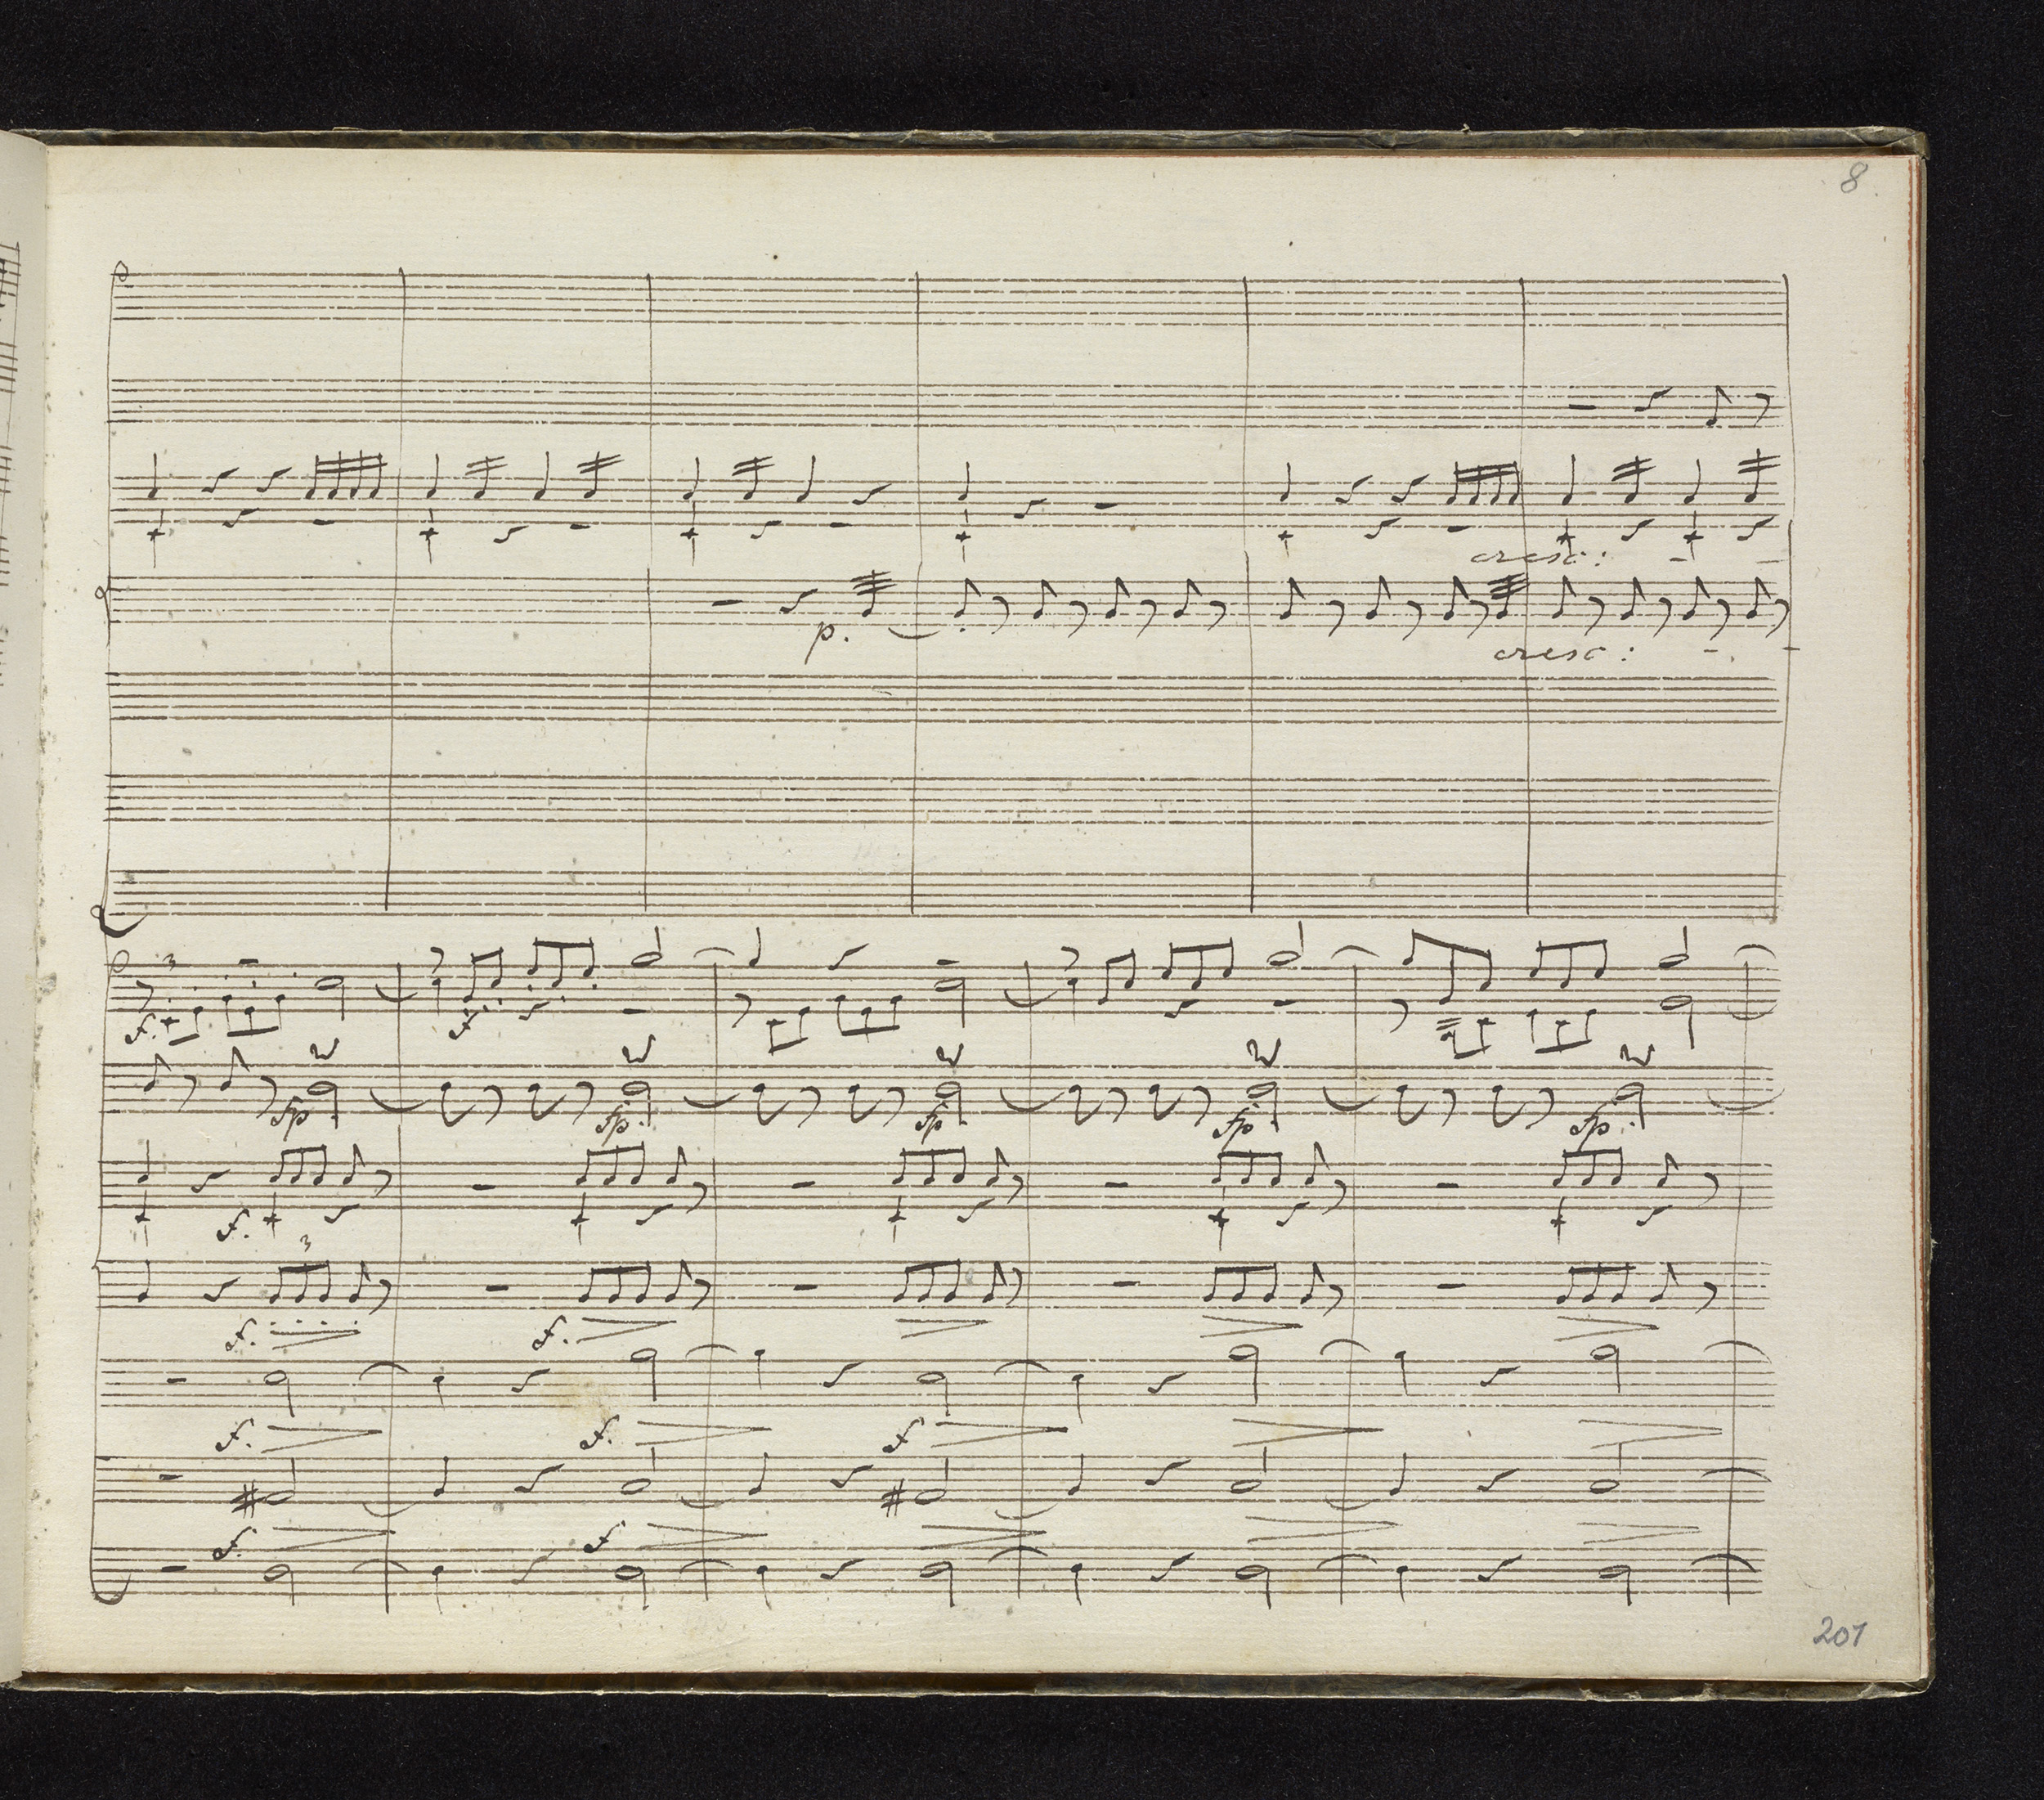 8.
cresc: - -
p.
cresc: - -
3
f. f.
fp fp. fp. fp. fp.
f.
3
f. f.
f. f. f
f. f
201